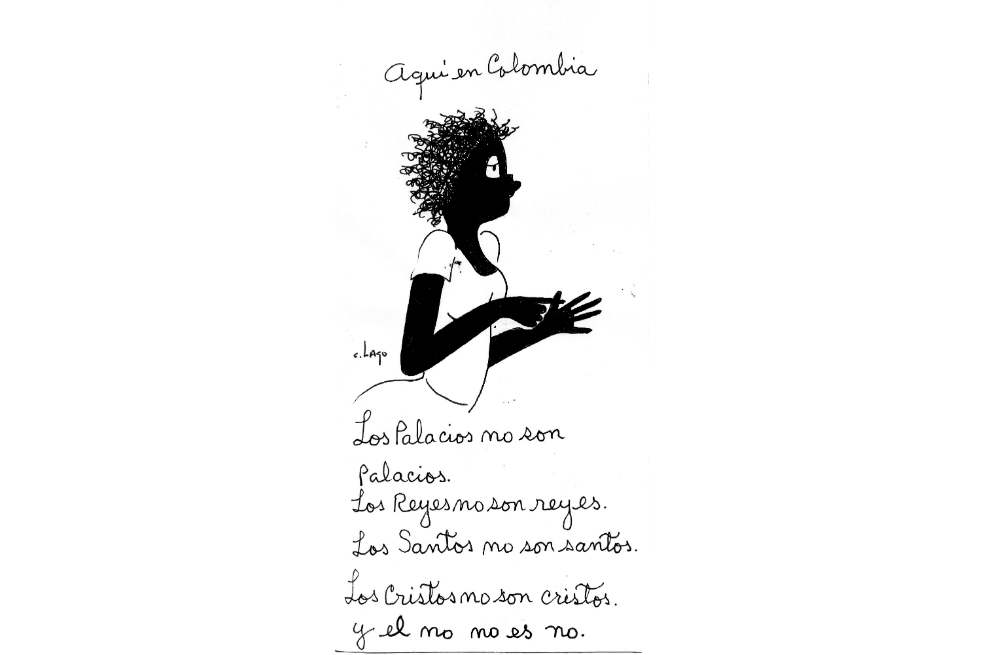 Aquí en Colombia
c. Lago
Los Palacios no son
Palacios.
Los Reyes no son reyes.
Los Santos no son santos.
Los Cristos no son cristos.
y el no no es no.